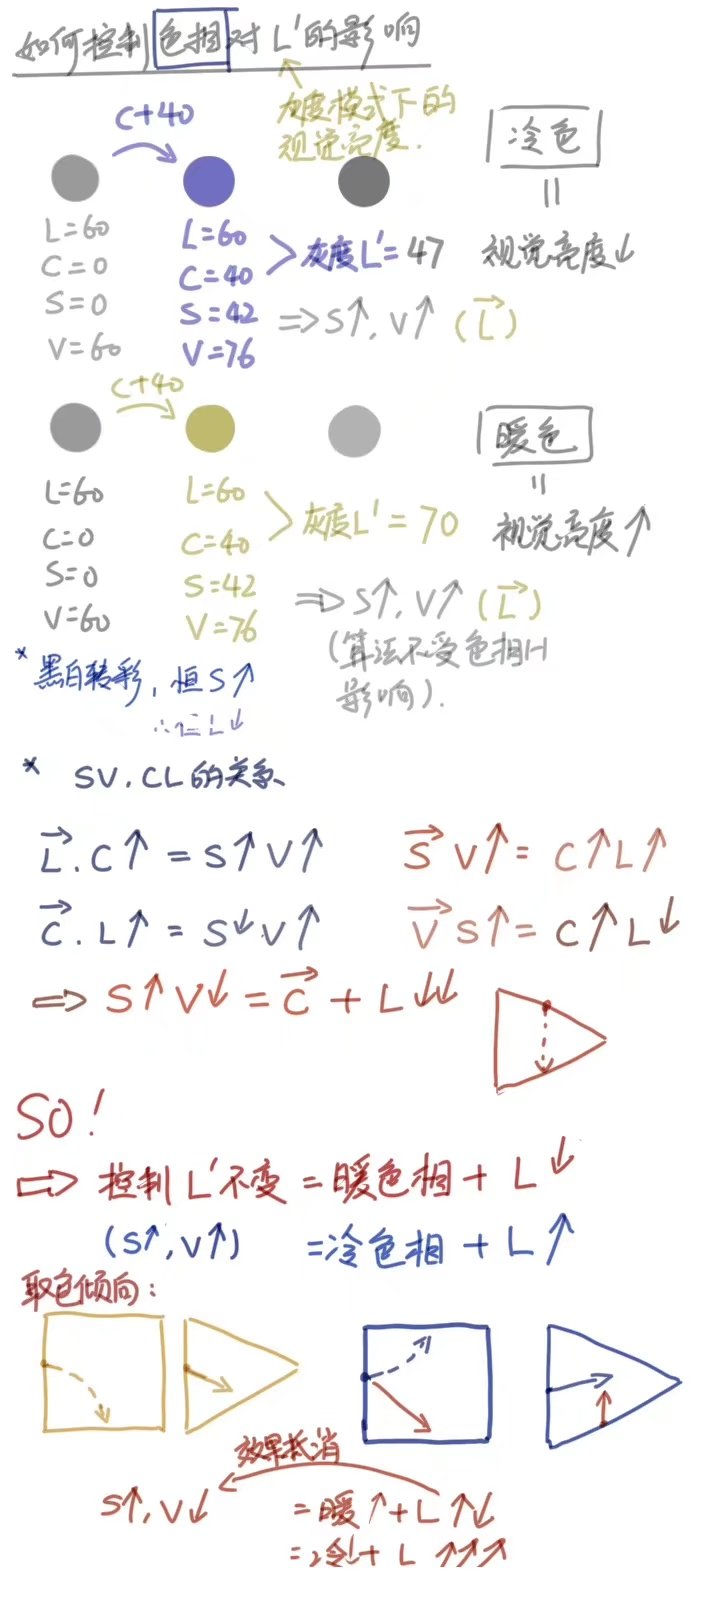 如何控制色相对L'的影响
灰度模式下的
视觉亮度.
C+40
冷色
=
视觉亮度↓
L=60
C=0
S=0
V=60
L=60
C=40
S=42
V=76
> 灰度L'=47
⇒S↑,V↑ (L→)
C+40
暖色
=
视觉亮度↑
L=60
C=0
S=0
V=60
L=60
C=40
S=42
V=76
> 灰度L'=70
⇒S↑,V↑ (L→)
(算法不受色相H
影响).
* 黑白转彩,恒S↑
L↓
* SV.CL的关系
L→.C↑=S↑V↑
S→V↑=C↑L↑
C→.L↑=S↓V↑
V→S↑=C↑L↓
⇒S↑V↓=C→+L↓↓
SO!
⇒控制L'不变=暖色相+L↓
(S↑,V↑) =冷色相+L↑
取色倾向:
效果抵消
S↑,V↓ =暖↑+L↑↓
=冷↓+L↑↑↑